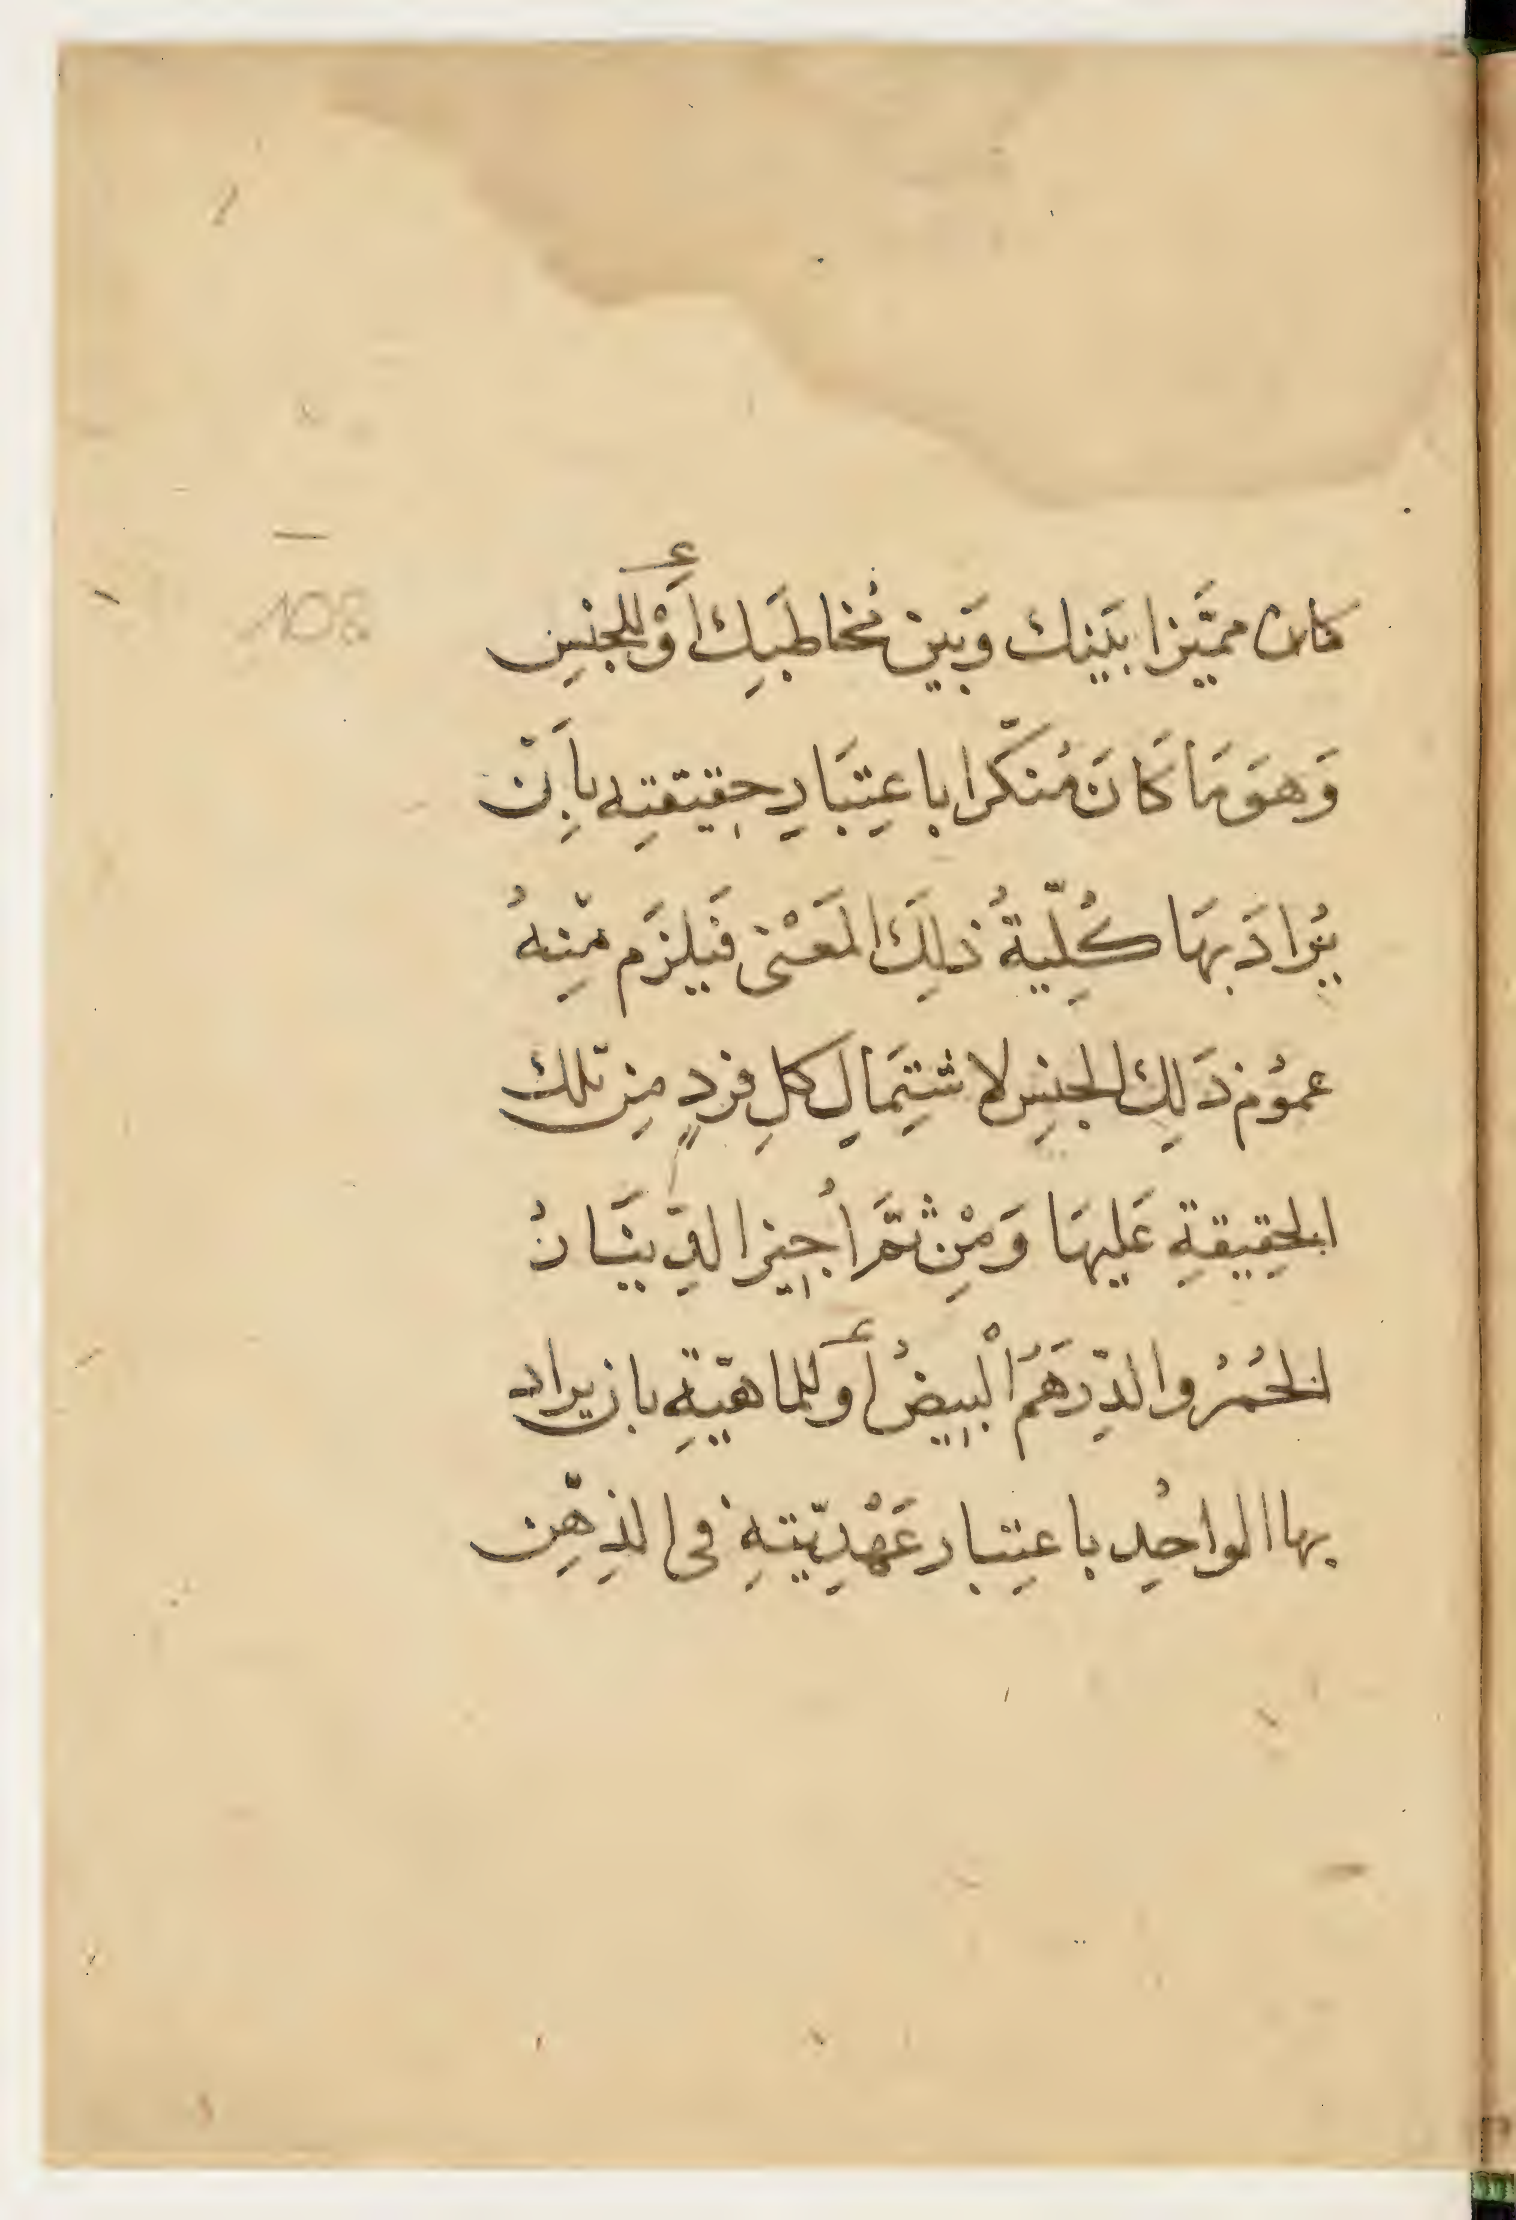 108
كان مميَّزا بَينك وَبين مُخاطَبِك أَوْ للجنسِ
وَهوَ مَا كَانَ مُنكّرا باعتِبَارِ حقيقتِه بأِنْ
يُرَادَ بهَا كُلّيةُ ذلِكَ المَعْنى فَيلزَم منْهُ
عمُوم ذَلِك الجنسِ لاشتِمَالِ كلِ فردٍ مِن تلك
الحقِيقةِ عَليهَا وَمْنِ ثَمَّ أُجيز الدِّينَارُ
الحُمْرُ والدِّرهَمُ الْبِيضُ أَو للماهيّةِ بان يراد
بها الواحُدِ باعتِبار عَهْدِيّتهِ فى الذِهّن